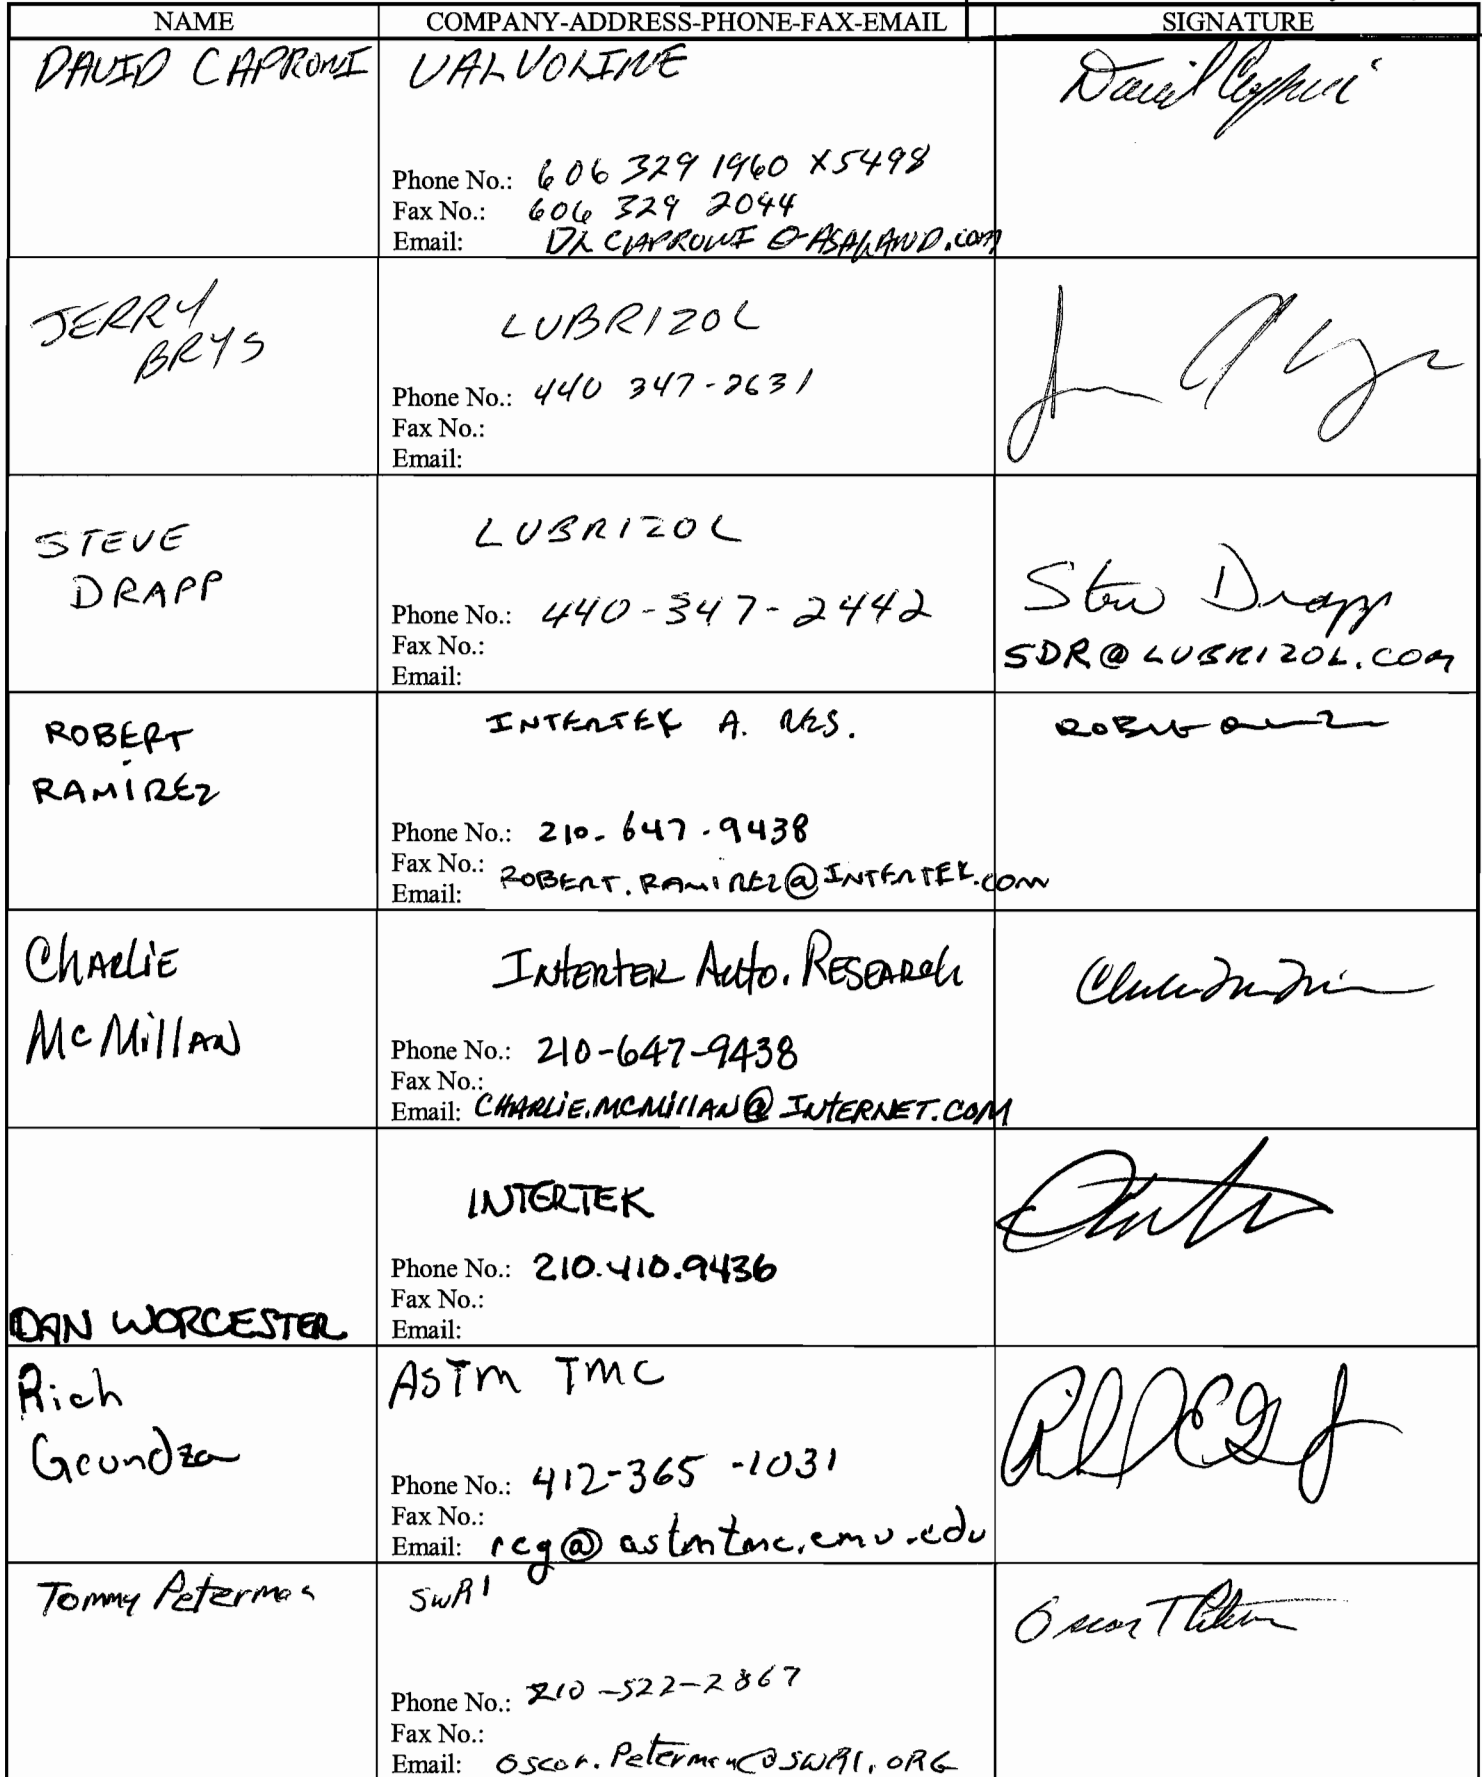 NAME COMPANY-ADDRESS-PHONE-FAX-EMAIL SIGNATURE
DAVID CAPRONI VALVOLINE
Phone No.: 606 329 1960 X5498
Fax No.: 606 329 2044
Email:
JERRY
BRYS
LUBRIZOL
Phone No.: 440 347-2631
Fax No.:
Email:
STEVE
DRAPP
LUBRIZOL
Phone No.: 440-347-2442
Fax No.:
Email:
Steve Drapp
SDR@LUBRIZOL.COM
ROBERT
RAMIREZ
INTERTEK A. RES.
Phone No.: 210-647-9438
Fax No.:
Email: ROBERT.RAMIREZ@INTERTEK.COM
CHARLIE
McMillAN
INTERTEK Auto. RESEARCH
Phone No.: 210-647-9438
Fax No.:
Email: CHARLIE.MCMillAN@INTERNET.COM
DAN WORCESTER
INTERTEK
Phone No.: 210.410.9436
Fax No.:
Email:
Rich
Grundza
ASTM TMC
Phone No.: 412-365-1031
Fax No.:
Email: rcg@astmtmc.cmu.edu
Tommy Peterman
SwRI
Phone No.: 210-522-2867
Fax No.:
Email: oscar.Peterman@SWRI.ORG